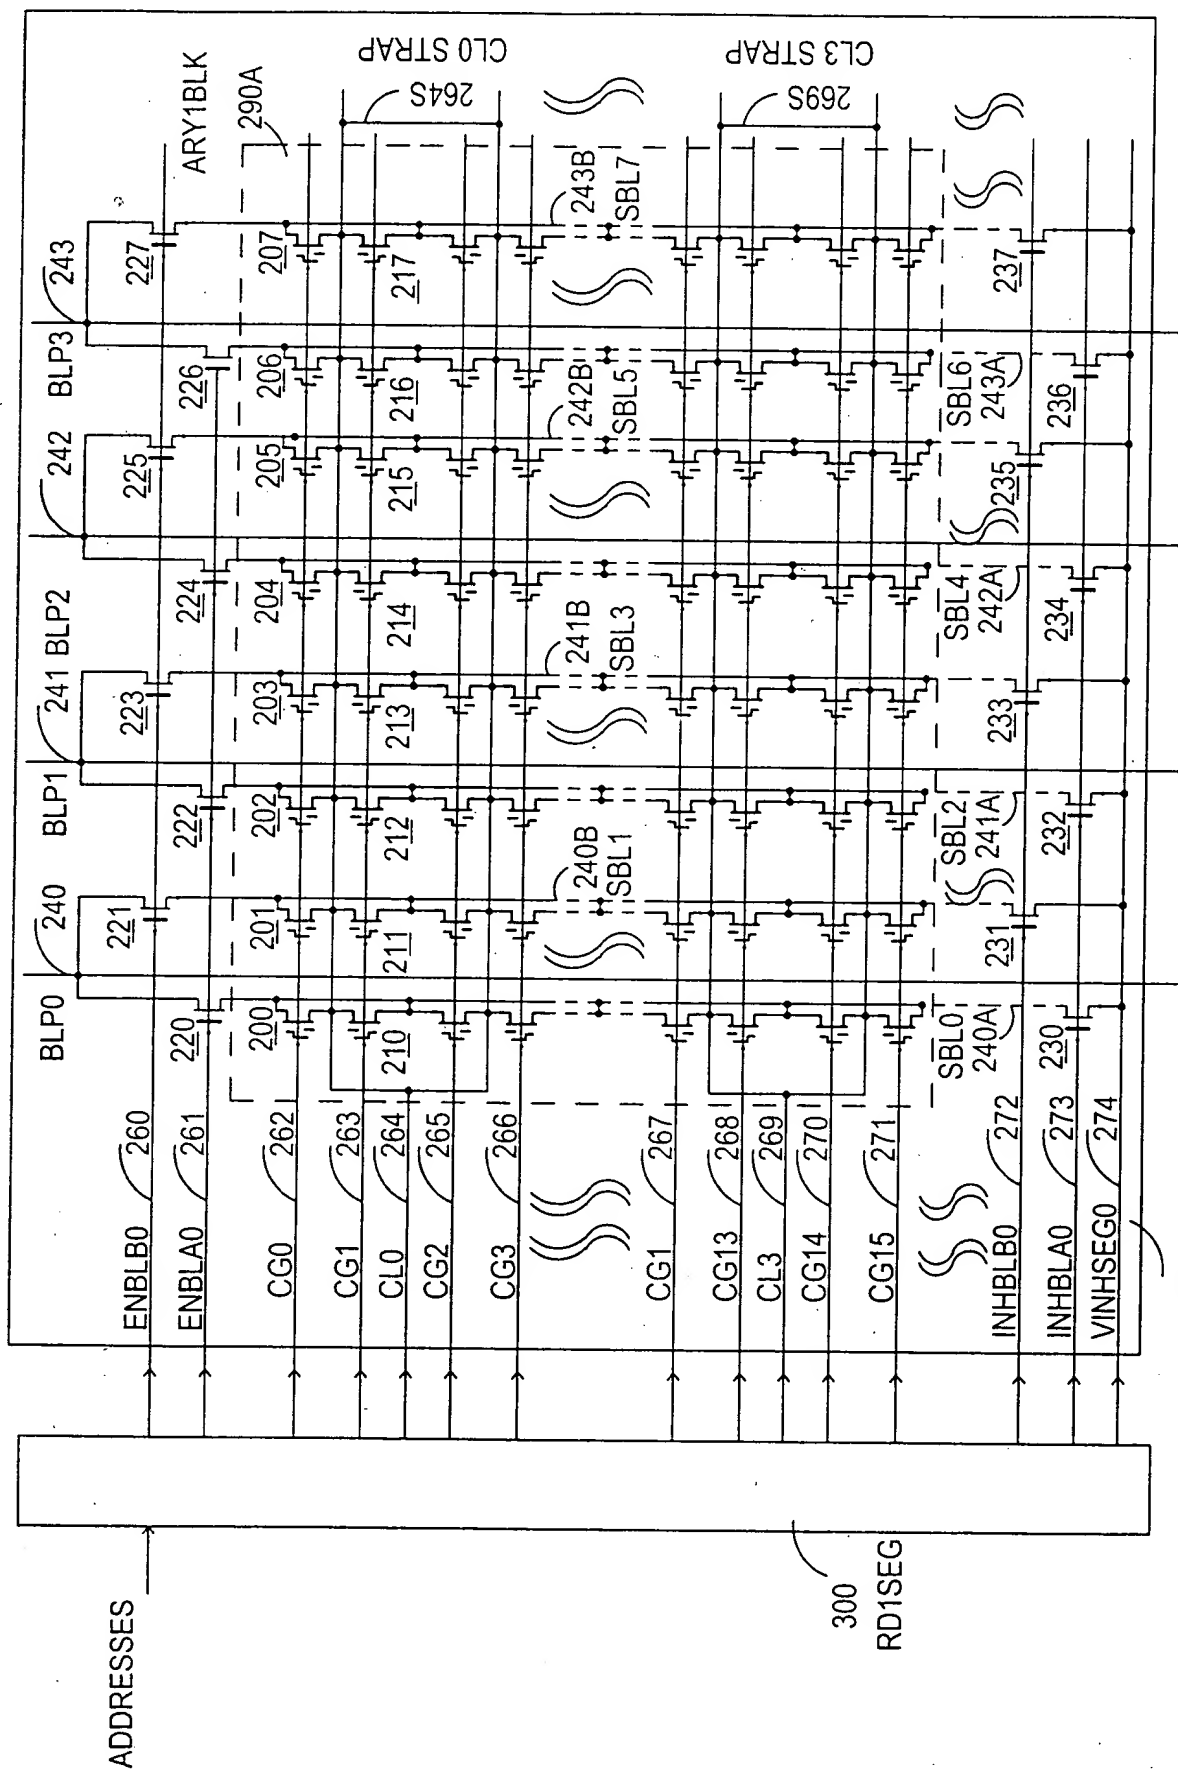 ADDRESSES
300
RD1SEG
ENBLB0 260
ENBLA0 261
CG0 262
CG1 263
CL0 264
CG2 265
CG3 266
CG1 267
CG13 268
CL3 269
CG14 270
CG15 271
INHBLB0 272
INHBLA0 273
VINHSEG0 274
BLP0 240
BLP1 241
BLP2 242
BLP3 243
220 221 222 223 224 225 226 227
ARY1BLK
290A
200 201 202 203 204 205 206 207
210 211 212 213 214 215 216 217
CL0 STRAP
264S
240B
SBL1
241B
SBL3
242B
SBL5
243B
SBL7
CL3 STRAP
269S
SBL0
240A
SBL2
241A
SBL4
242A
SBL6
243A
230 231 232 233 234 235 236 237